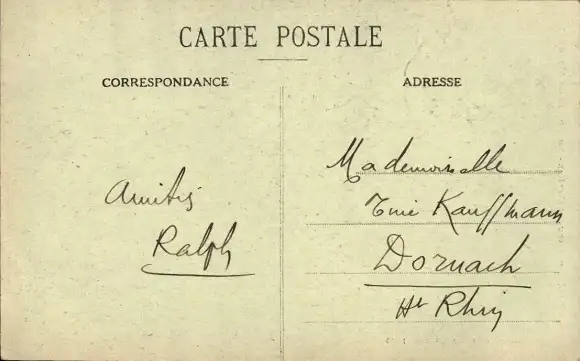 CARTE POSTALE
CORRESPONDANCE
ADRESSE
Amitiés
Ralph
Mademoiselle
Kauffmann
Dornach
Ht Rhin